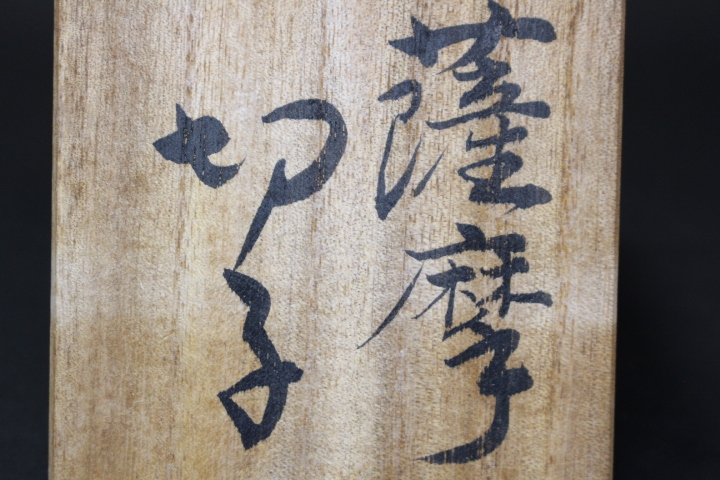 薩摩
切子